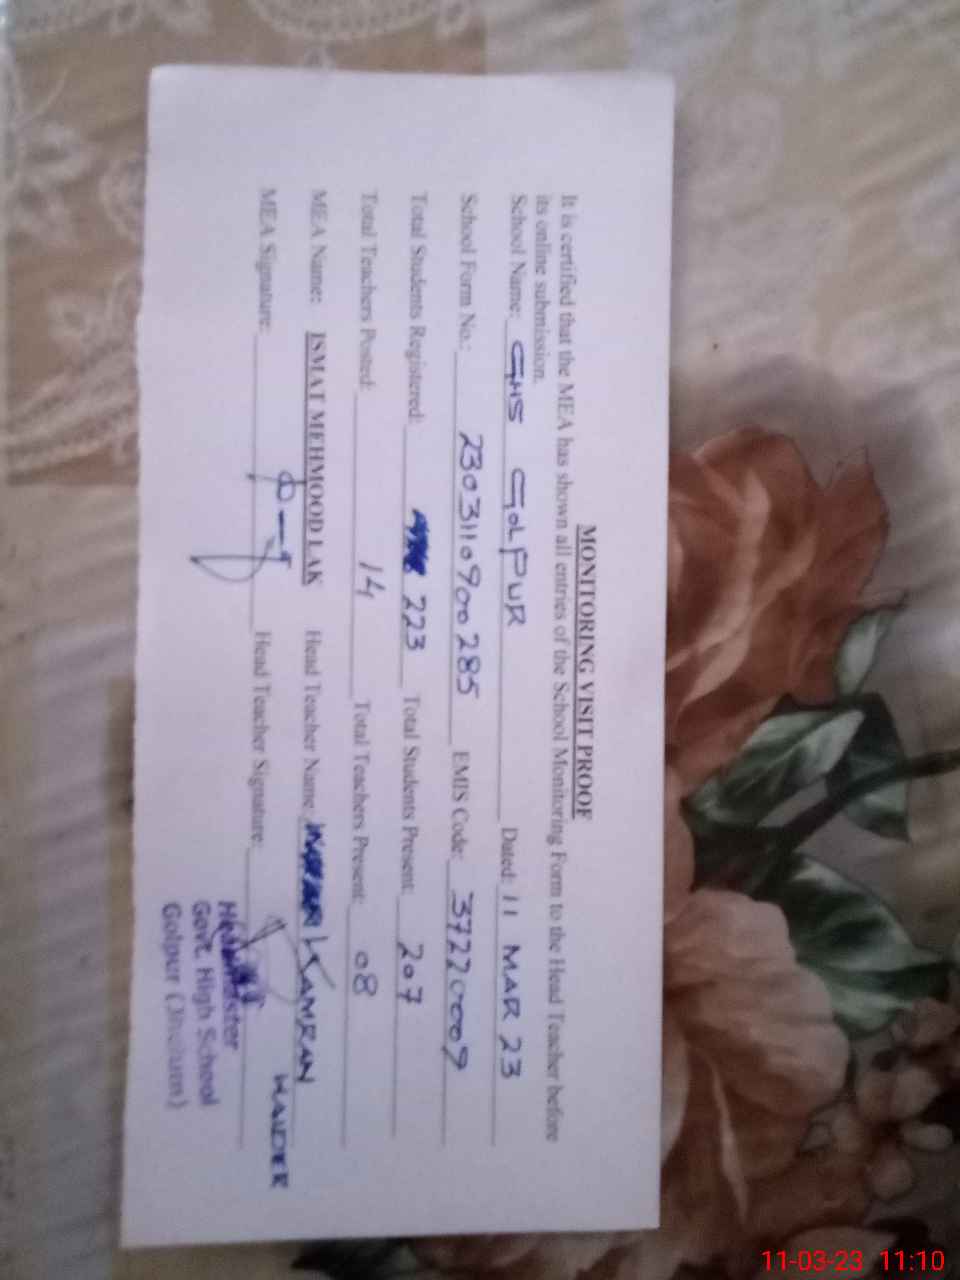 MONITORING VISIT PROOF
It is certified that the MEA has shown all entries of the School Monitoring Form to the Head Teacher before
its online submission.
School Name: GHS GOLPUR Dated: 11 MAR 23
School Form No.: 230311090028​5 EMIS Code: 37220009
Total Students Registered: 223 Total Students Present: 207
Total Teachers Posted: 14 Total Teachers Present: 08
MEA Name: ISMAT MEHMOOD LAK Head Teacher Name KAMRAN HAIDER
MEA Signature: Head Teacher Signature:
Headmaster
Govt. High School
Golpur (Jhelum)
11-03-23 11:10